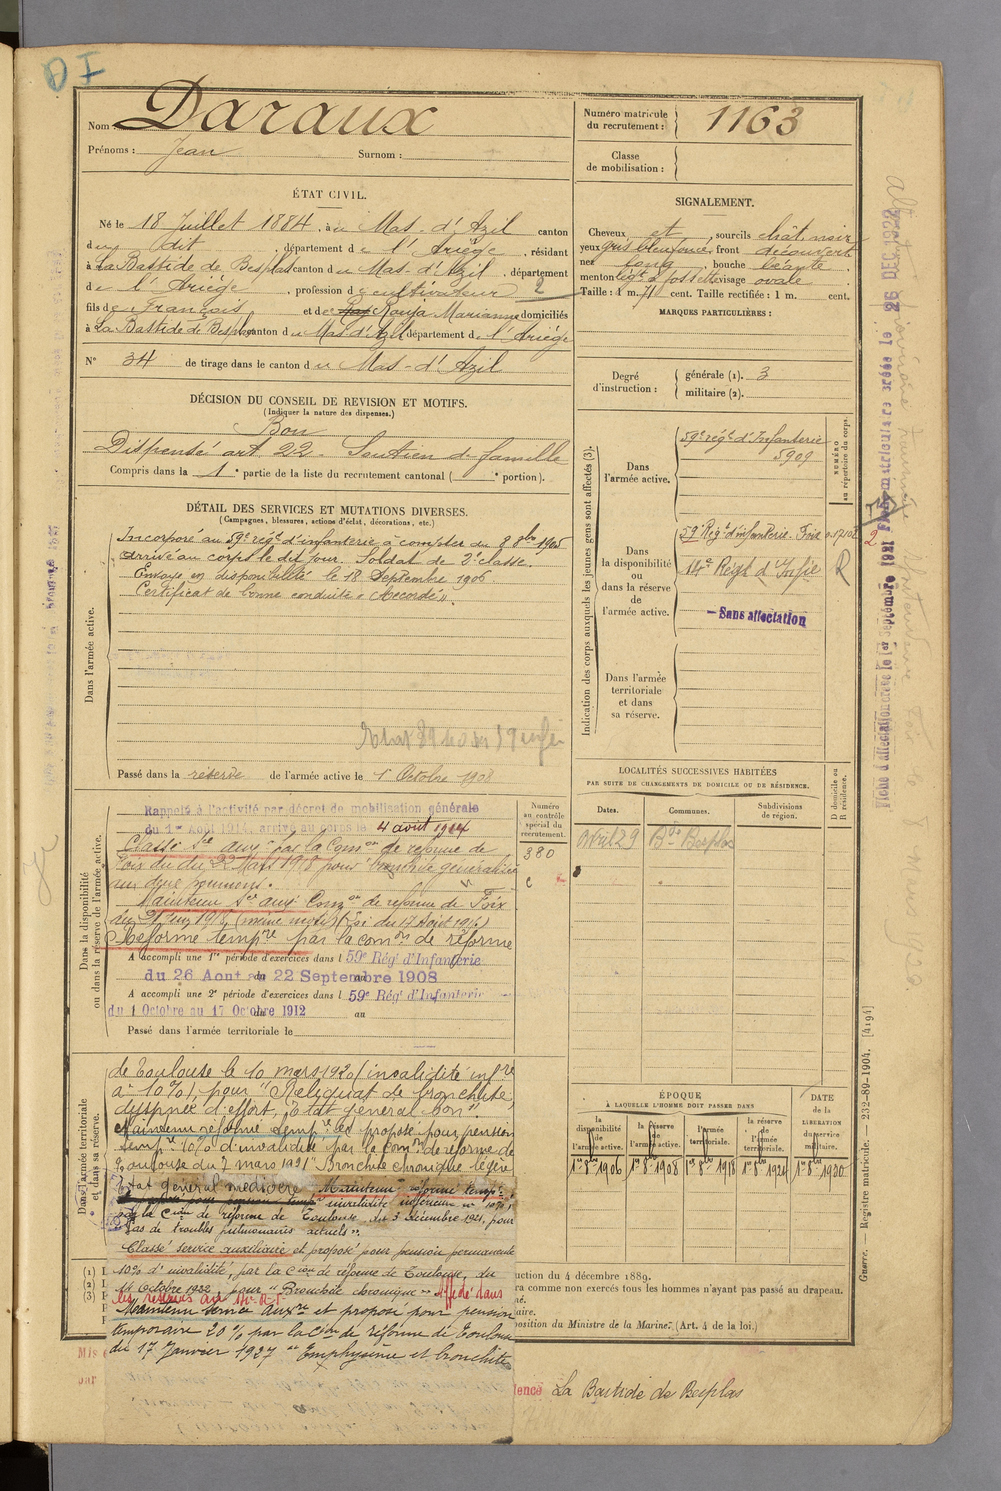 Nom Daraux
Prénoms : Jean Surnom :
Numéro matricule du recrutement : 1163
Classe de mobilisation :
ÉTAT CIVIL.
Né le 18 Juillet 1884, à u Mas-d'Azil canton
du dit, département de l'Ariège, résidant
à La Bastide de Besplas canton du Mas-d'Azil, département
de l'Ariège, profession de cultivateur 2
fils de François et de Rouja Marianne domiciliés
à La Bastide de Besplas canton du Mas-d'Azil département de l'Ariège
N° 34 de tirage dans le canton du Mas-d'Azil
SIGNALEMENT.
Cheveux et, sourcils chât. noir
yeux gris bleu foncé, front découvert
nez long, bouche béante
menton à fossette visage ovale
Taille : 1 m. 71 cent. Taille rectifiée : 1 m. cent.
MARQUES PARTICULIÈRES :
Degré d'instruction : générale (1). 3
militaire (2).
DÉCISION DU CONSEIL DE REVISION ET MOTIFS.
(Indiquer la nature des dispenses.)
Bon
Dispensé art. 22 - Soutien de famille
Compris dans la 1e partie de la liste du recrutement cantonal ( e portion).
DÉTAIL DES SERVICES ET MUTATIONS DIVERSES.
(Campagnes, blessures, actions d'éclat, décorations, etc.)
Dans l'armée active.
Incorporé au 59e régt d'infanterie à compter du 8 8bre 1905
arrivé au corps le dit jour. Soldat de 2e classe.
Envoyé en disponibilité le 18 Septembre 1906.
Certificat de bonne conduite « Accordé ».
Passé dans la réserve de l'armée active le 1er Octobre 1908
Indication des corps auxquels les jeunes gens sont affectés (3).
NUMÉRO au répertoire du corps.
Dans l'armée active.
59e régt d'Infanterie
5909
Dans la disponibilité ou dans la réserve de l'armée active.
59e Régt d'infanterie. Foix
14e Régt d'Infie R
- Sans affectation
Dans l'armée territoriale et dans sa réserve.
LOCALITÉS SUCCESSIVES HABITÉES
PAR SUITE DE CHANGEMENTS DE DOMICILE OU DE RÉSIDENCE.
Dates. Communes. Subdivisions de région. D domicile ou R résidence.
Avril 29 Bde Besplas
Dans la disponibilité ou dans la réserve de l'armée active.
Numéro au contrôle spécial du recrutement.
380
Rappelé à l'activité par décret de mobilisation générale
du 1er Août 1914, arrivé au corps le 4 août 1914
Classé Sce aux. par la Comon de réforme de
Foix du 22 Mars 1918 pour bronchite généralisée
aux deux poumons.
Maintenu Sce aux. Comon de réforme de Foix
Réformé tempre par la comon de réforme
A accompli une 1re période d'exercices dans l 59e Régt d'Infanterie
du 26 Aout au 22 Septembre 1908
A accompli une 2e période d'exercices dans l 59e Régt d'Infanterie
du 1 Octobre au 17 Octobre 1912 au
Passé dans l'armée territoriale le
Dans l'armée territoriale et dans sa réserve.
de Toulouse le 10 mars 1920 (invalidité infre
à 10%) pour "Reliquat de bronchite,
dyspnée d'effort, état général bon".
Maintenu réformé tempre et proposé pour pension
tempre 10% d'invalidité par la comon de réforme de
Toulouse du 7 mars 1921 "Bronchite chronique légère
Etat général médiocre" Maintenu réformé tempre
invalidité inférieure à 10%,
par la Cion de réforme de Toulouse du 3 décembre 1921, pour
"Pas de troubles pulmonaires actuels".
Classé service auxiliaire et proposé pour pension permanente
10% d'invalidité, par la Cion de réforme de Toulouse, du
14 Octobre 1922 pour "Bronchite chronique" Affecté dans
Maintenu service auxre et proposé pour pension
temporaire 20% par la Cion de réforme de Toulouse
du 17 Janvier 1927 "Emphysème et bronchite
ÉPOQUE
À LAQUELLE L'HOMME DOIT PASSER DANS
la disponibilité de l'armée active. la réserve de l'armée active. l'armée territoriale. la réserve de l'armée territoriale. DATE de la LIBÉRATION du service militaire.
1er 8bre 1906 1er 8bre 1908 1er 8bre 1918 1er 8bre 1924 1er 8bre 1930
(1)
(2)
(3)
uction du 4 décembre 1889.
ra comme non exercés tous les hommes n'ayant pas passé au drapeau.
position du Ministre de la Marine. (Art. 4 de la loi.)
Mis
par
dence La Bastide de Besplas
Guerre. — Registre matricule. — 232-89-1904. [4194]
26 DEC 1922